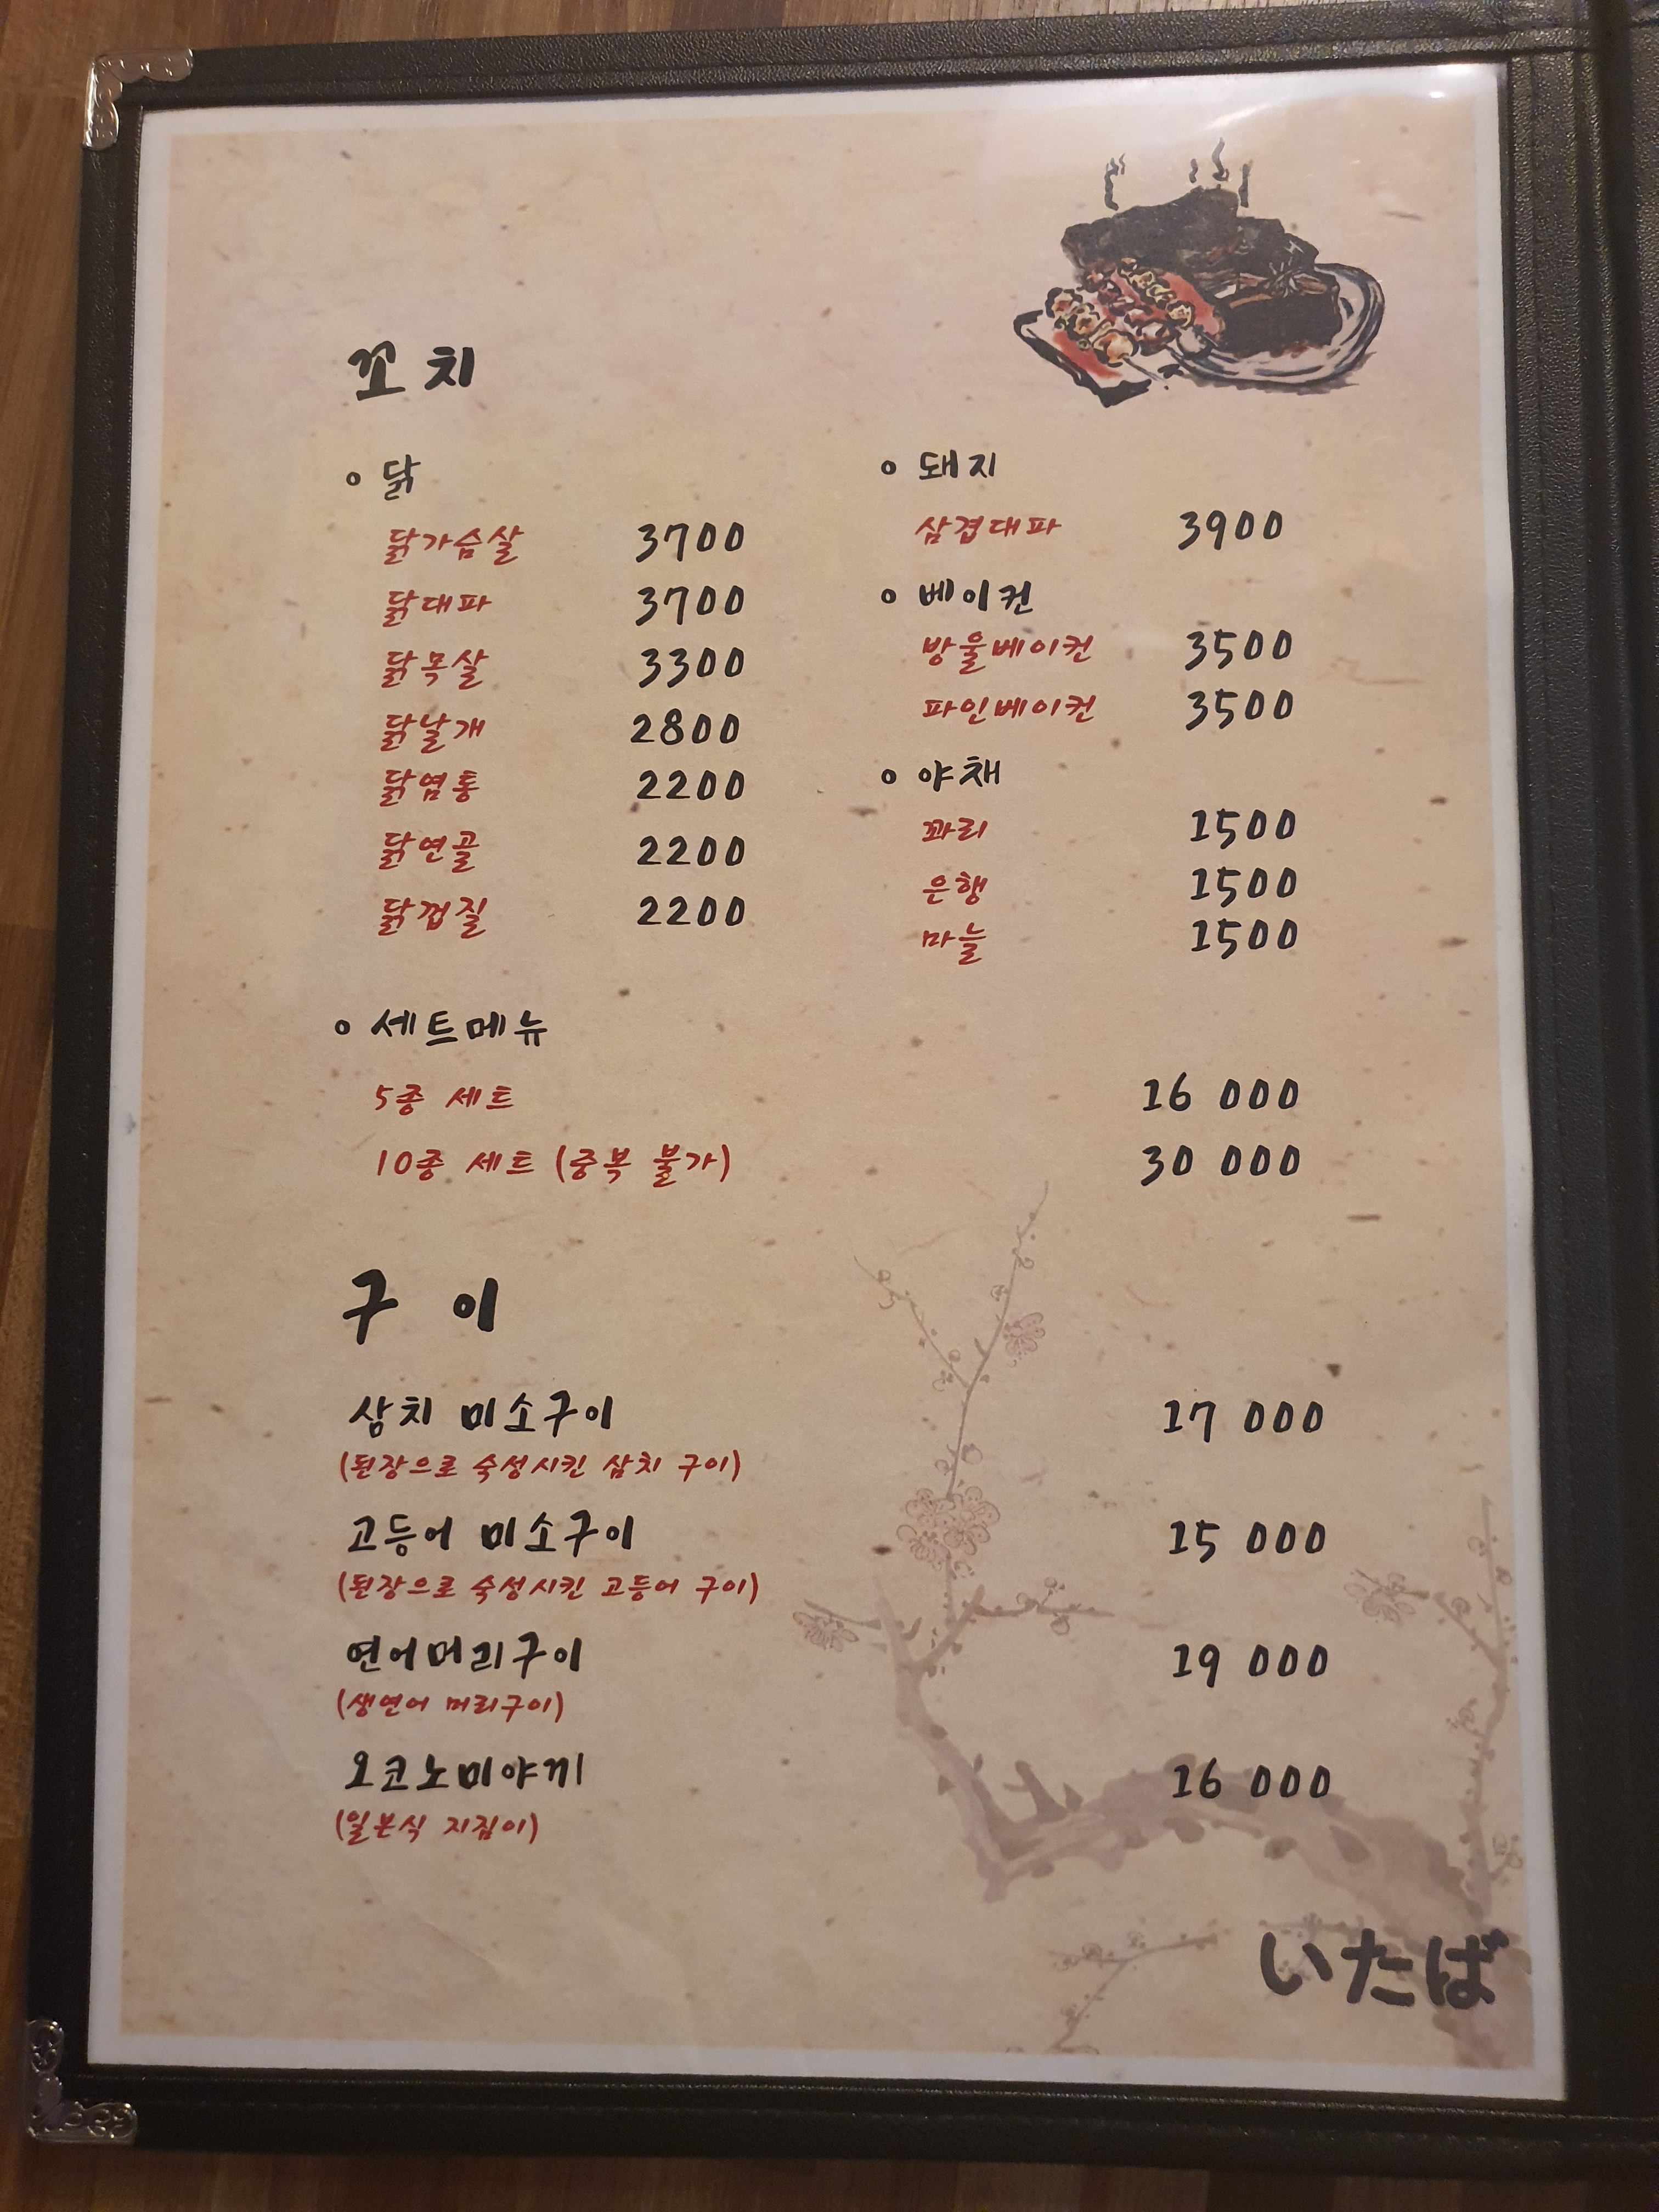 꼬치
닭
닭가슴살 3700
닭대파 3700
닭목살 3300
닭날개 2800
닭염통 2200
닭연골 2200
닭껍질 2200
돼지
삼겹대파 3900
베이컨
방울베이컨 3500
파인베이컨 3500
야채
꽈리 1500
은행 1500
마늘 1500
세트메뉴
5종 세트 16 000
10종 세트 (중복 불가) 30 000
구 이
삼치 미소구이 17 000
(된장으로 숙성시킨 삼치 구이)
고등어 미소구이 15 000
(된장으로 숙성시킨 고등어 구이)
연어머리구이 19 000
(생연어 머리구이)
오코노미야끼 16 000
(일본식 지짐이)
いたば